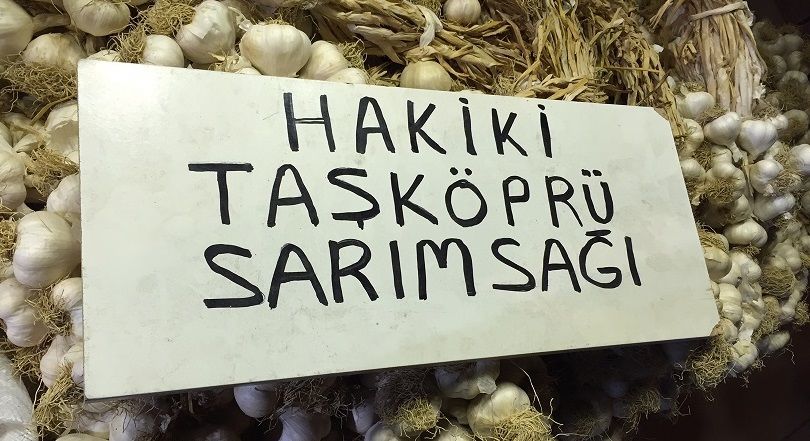 HAKİKİ
TAŞKÖPRÜ
SARIMSAĞI